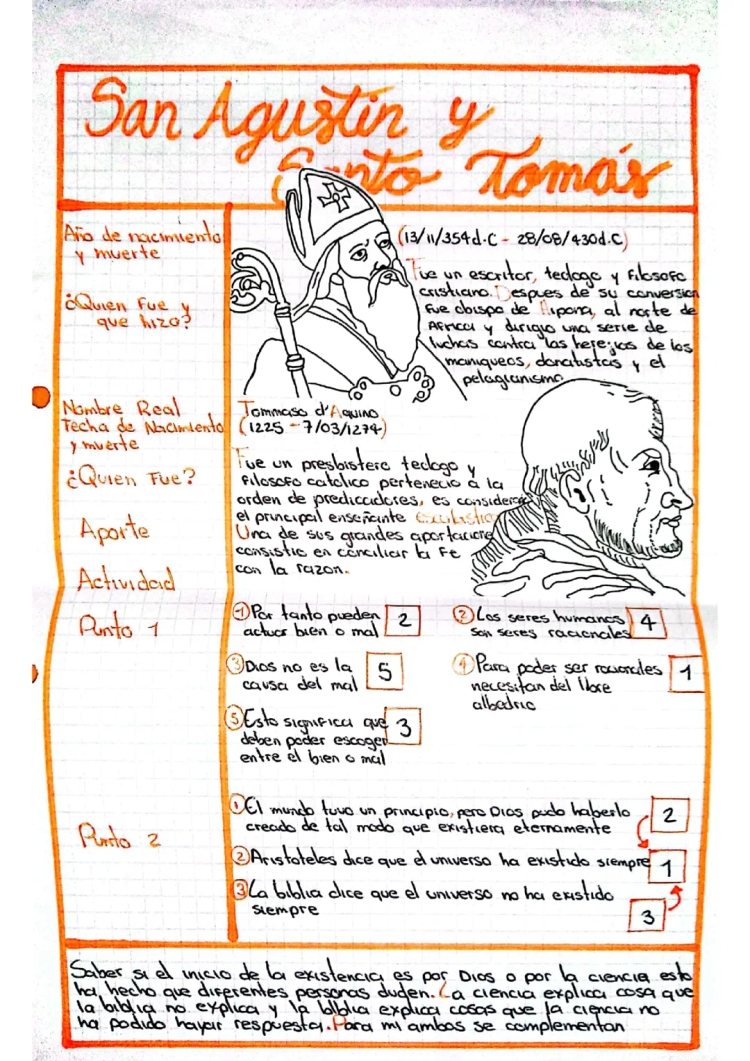 San Agustín y
Santo Tomás
Año de nacimiento
y muerte
(13/11/354d.C - 28/08/430d.C)
¿Quien Fue y
que hizo?
Fue un escritor, teologo y Filosofo
cristiano. Despues de su conversion
Fue obispo de Hipona, al norte de
Africa y dirigio una serie de
luchas contra las herejias de los
maniqueos, donatistas y el
pelagianismo
Nombre Real
Fecha de Nacimiento
y muerte
Tommaso d'Aquino
(1225 - 7/03/1274)
¿Quien Fue?
Aporte
Fue un presbistero teologo y
Filosofo catolico pertenecio a la
orden de predicadores, es considerado
el principal enseñante
Una de sus grandes aportaciones
consistio en conciliar la Fe
con la razon.
Actividad
Punto 1
① Por tanto pueden
actuar bien o mal
2
② Los seres humanos
son seres racionales
4
③ Dios no es la
causa del mal
5
④ Para poder ser racionales
necesitan del libre
albedrio
1
⑤ Esto significa que
deben poder escoger
entre el bien o mal
3
Punto 2
① El mundo tuvo un principio, pero Dios pudo haberlo
creado de tal modo que existiera eternamente
2
② Aristoteles dice que el universo ha existido siempre
1
③ La biblia dice que el universo no ha existido
siempre
3
Saber si el inicio de la existencia es por Dios o por la ciencia esto
ha hecho que diferentes personas duden. La ciencia explica cosa que
la biblia no explica y la biblia explica cosas que la ciencia no
ha podido hayar respuesta. Para mi ambos se complementan